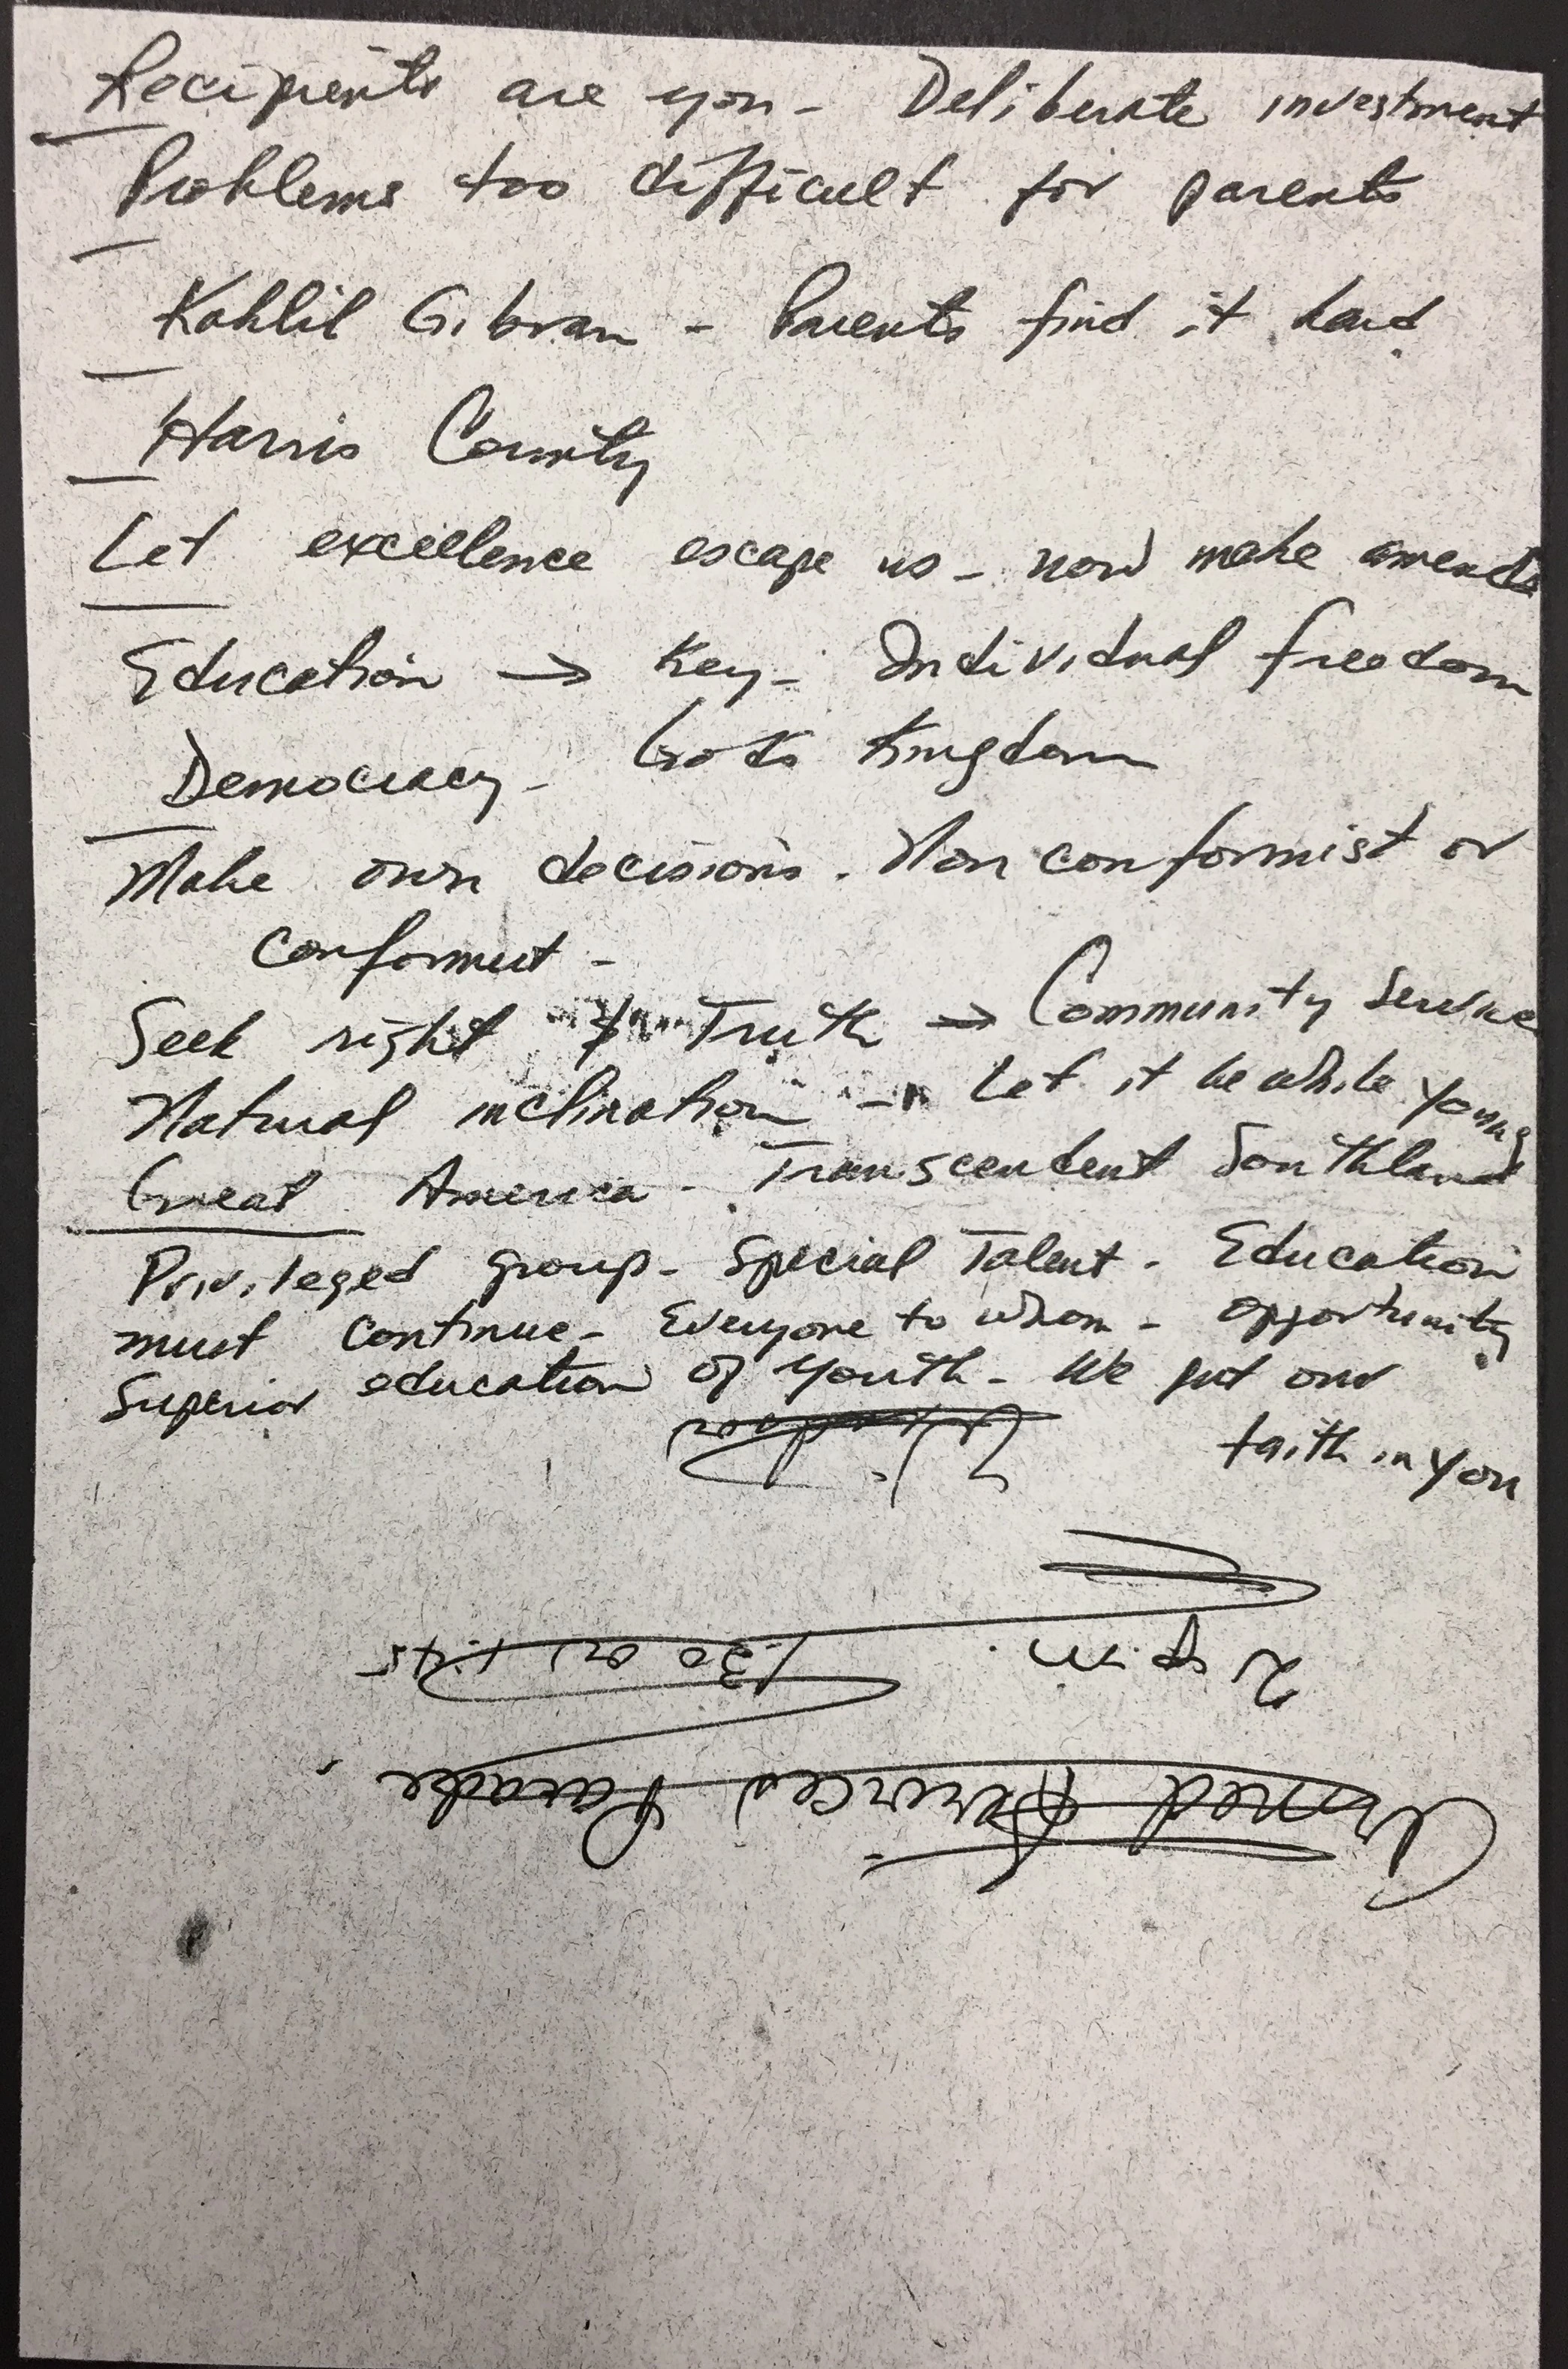 Recipients are you - Deliberate investment
Problems too difficult for parents
Kahlil Gibran - Parents find it hard
Harris County
Let excellence escape us - now make amends
Education → Key - Individual freedom
Democracy - God's Kingdom
Make own decisions. Non conformist or
conformist -
Seek right & Truth → Community Service
Natural inclination - Let it be while young
Great America - Transcendent Southland
Privileged group - Special Talent - Education
must continue - Everyone to whom - opportunity
Superior education of youth - We put our
faith in you
2 p.m.
1:30 or 1:45
Armed Services Parade